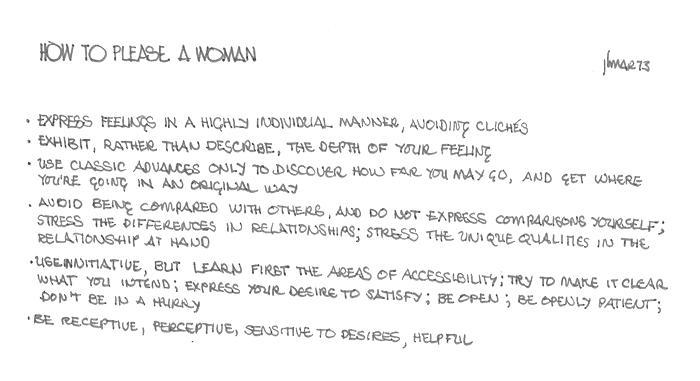 HOW TO PLEASE A WOMAN
jlMAR73
• EXPRESS FEELINGS IN A HIGHLY INDIVIDUAL MANNER, AVOIDING CLICHÉS
• EXHIBIT, RATHER THAN DESCRIBE, THE DEPTH OF YOUR FEELING
• USE CLASSIC ADVANCES ONLY TO DISCOVER HOW FAR YOU MAY GO, AND GET WHERE
YOU'RE GOING IN AN ORIGINAL WAY
• AVOID BEING COMPARED WITH OTHERS, AND DO NOT EXPRESS COMPARISONS YOURSELF;
STRESS THE DIFFERENCES IN RELATIONSHIPS; STRESS THE UNIQUE QUALITIES IN THE
RELATIONSHIP AT HAND
• USE INITIATIVE, BUT LEARN FIRST THE AREAS OF ACCESSIBILITY; TRY TO MAKE IT CLEAR
WHAT YOU INTEND; EXPRESS YOUR DESIRE TO SATISFY; BE OPEN; BE OPENLY PATIENT;
DON'T BE IN A HURRY
• BE RECEPTIVE, PERCEPTIVE, SENSITIVE TO DESIRES, HELPFUL